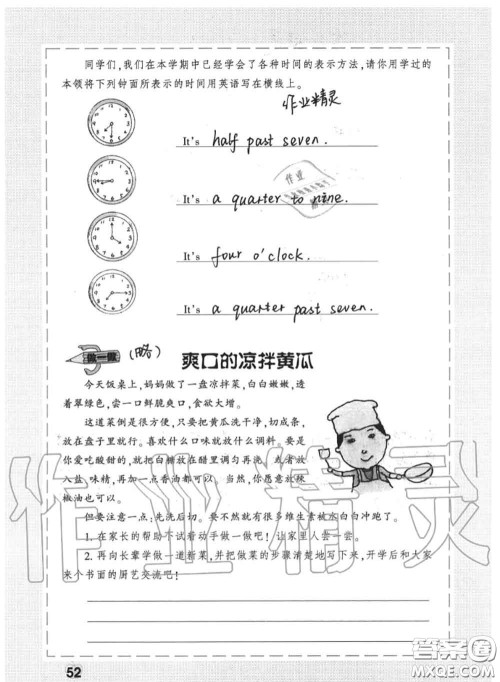 同学们,我们在本学期中已经学会了各种时间的表示方法,请你用学过的
本领将下列钟面所表示的时间用英语写在横线上。
作业精灵
It's half past seven.
作业
It's a quarter to nine.
It's four o'clock.
It's a quarter past seven.
做一做
(略)
爽口的凉拌黄瓜
今天饭桌上,妈妈做了一盘凉拌菜,白白嫩嫩,透
着翠绿色,尝一口鲜脆爽口,食欲大增。
这道菜倒是很方便,只要把黄瓜洗干净,切成条,
放在盘子里就行。喜欢什么口味就放什么调料。要是
你爱吃酸甜的,就把白糖放在醋里调匀再洗,或者放
入盐、味精,再加一点香油都可以。当然,你愿意放辣
椒油也可以。
但要注意一点:先洗后切。要不然就有很多维生素被水白白冲跑了。
1. 在家长的帮助下试着动手做一做吧!让家里人尝一尝。
2. 再向长辈学做一道新菜,并把做菜的步骤清楚地写下来,开学后和大家
来个书面的厨艺交流吧!
作业精灵
52
答案圈
MXQE.COM